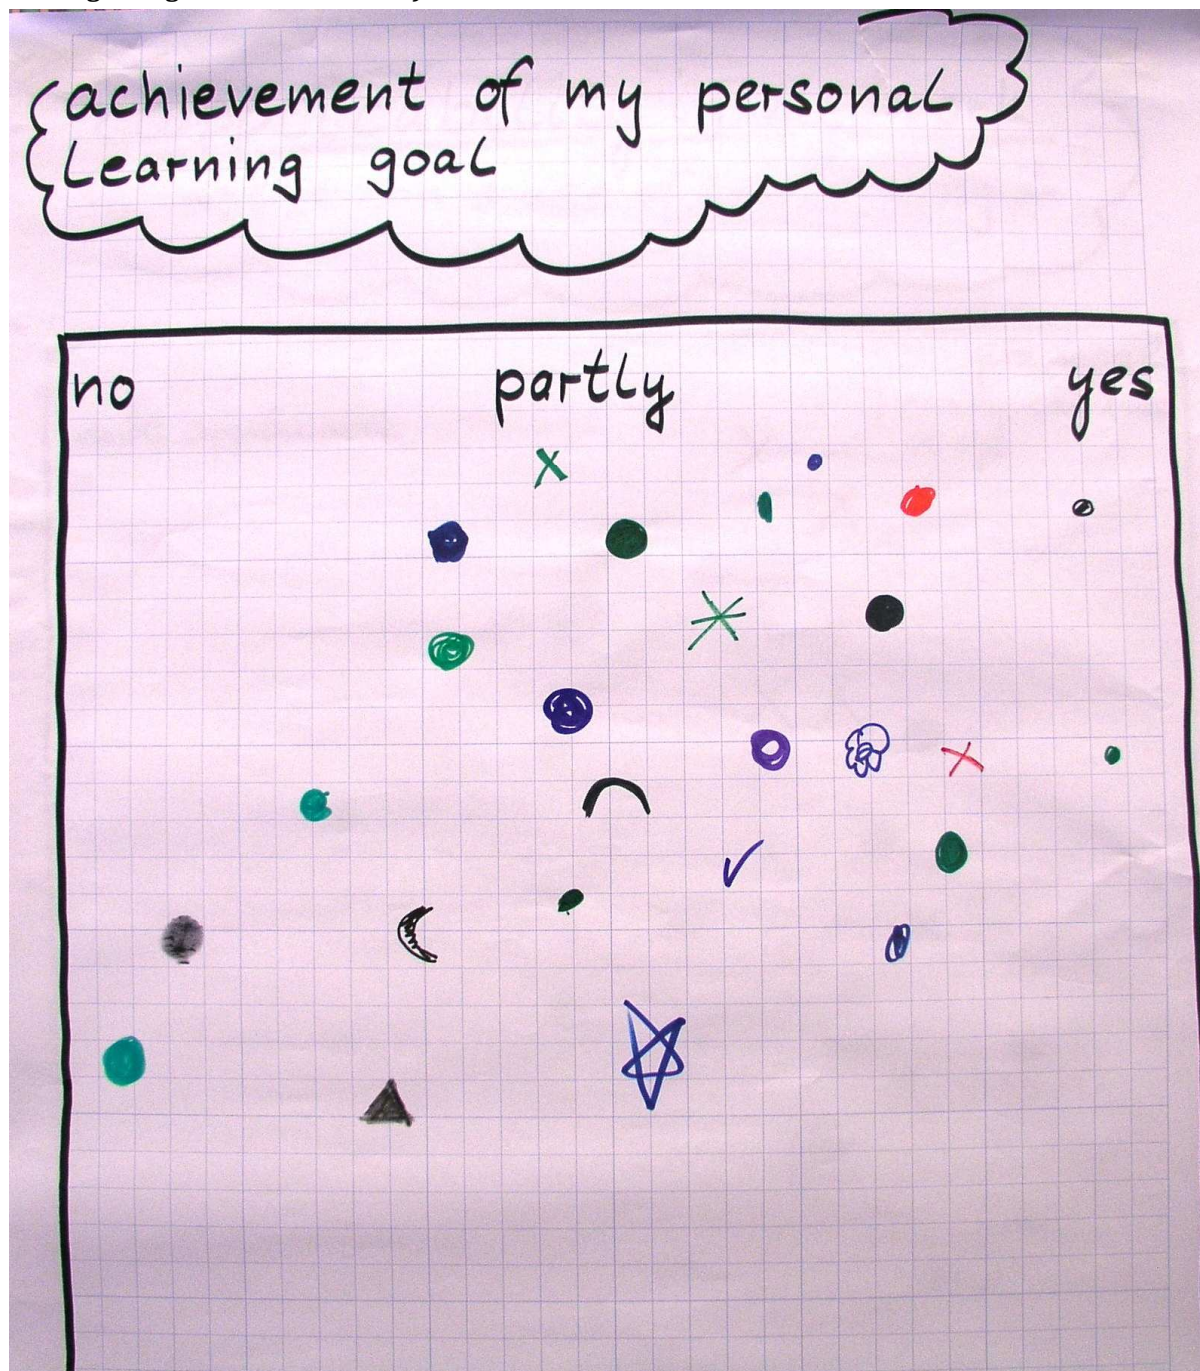 achievement of my personal
learning goal
no partly yes